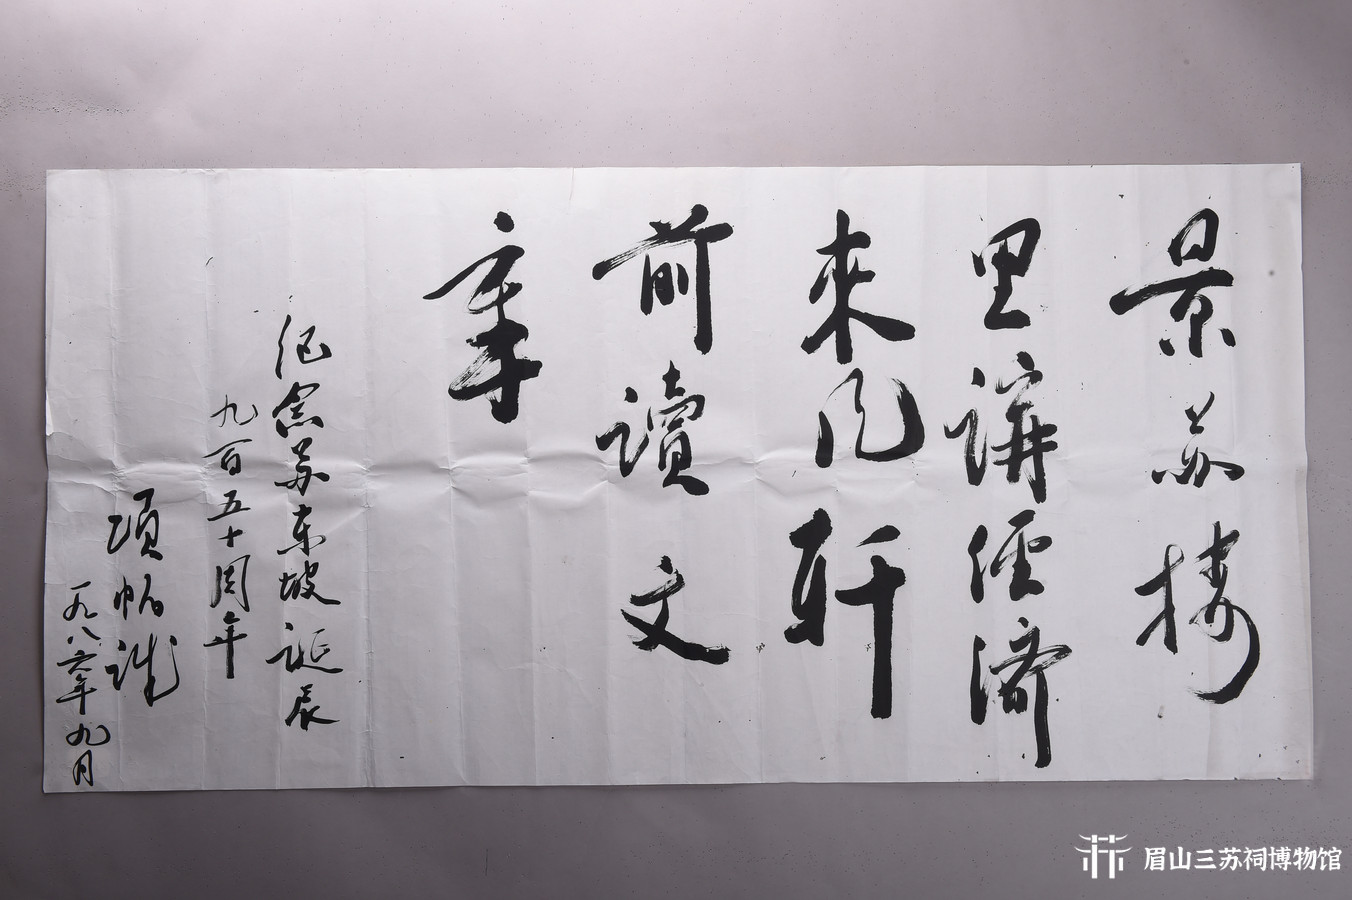 景苏楼
里講經濟
來凤轩
前讀文
章
纪念苏东坡诞辰
九百五十周年
项
一九八六年九月
眉山三苏祠博物馆